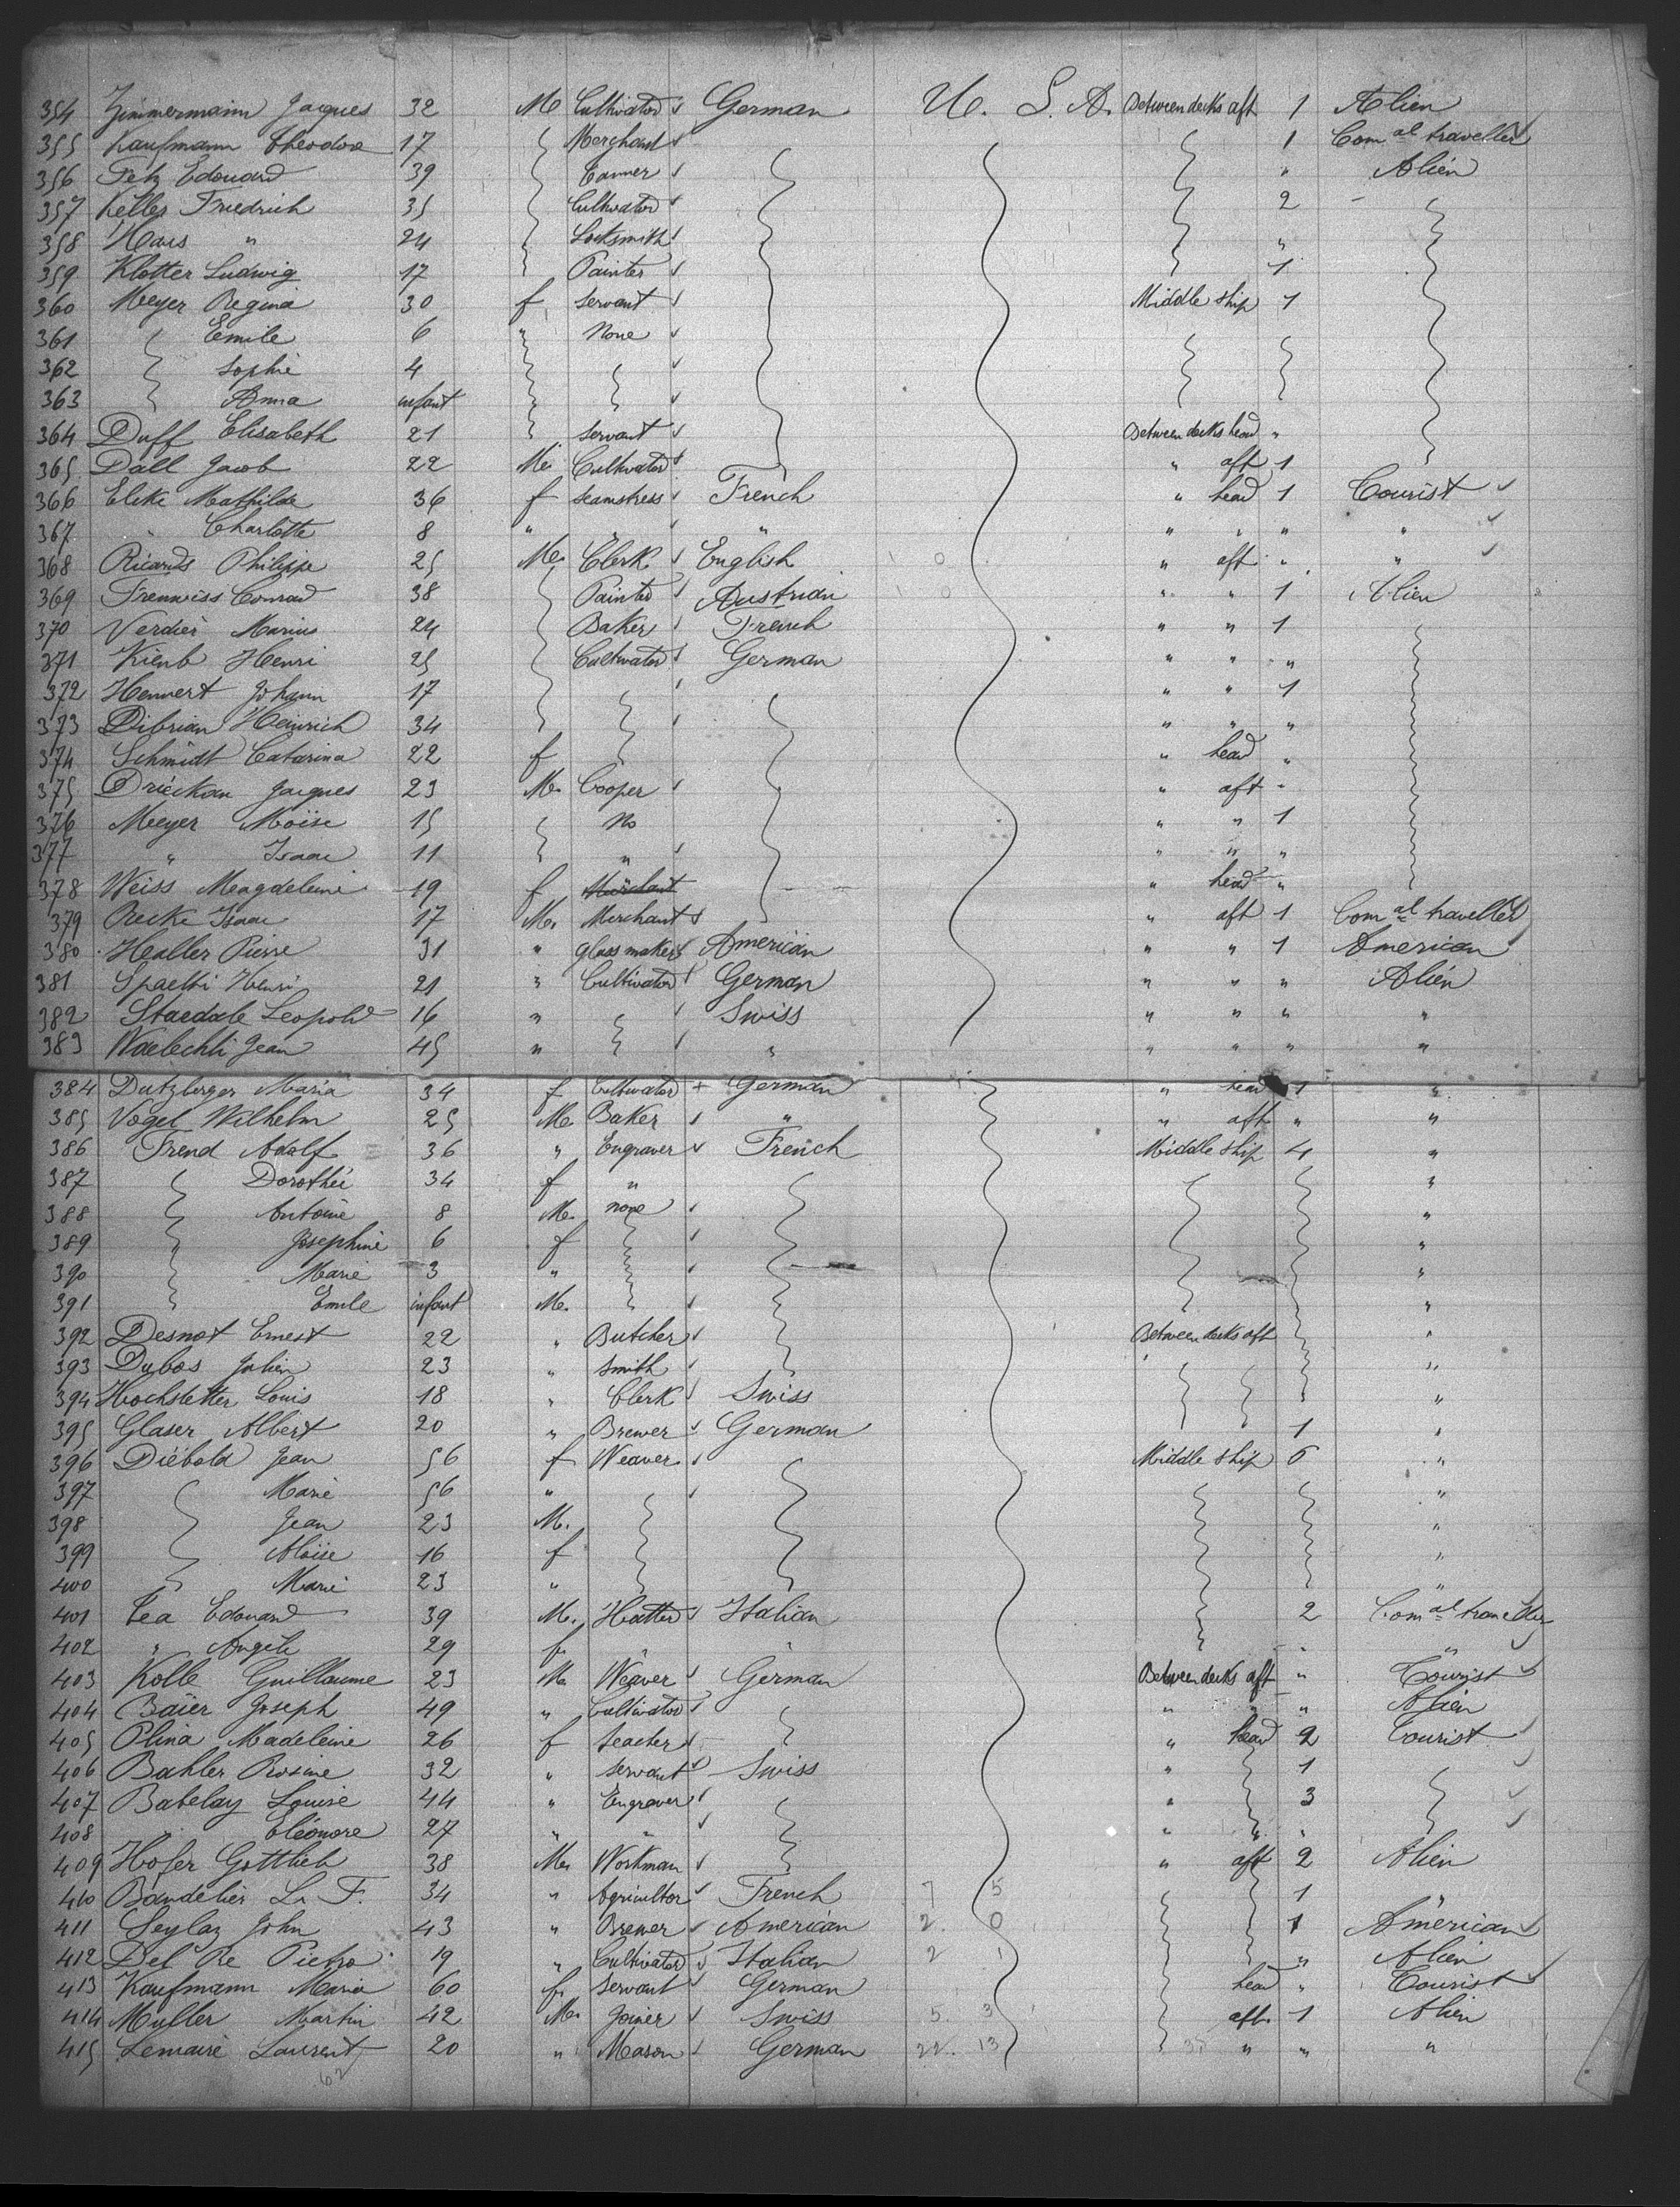 354 Zimmermann Jacques 32 M Cultivator German U. S. A. Between decks aft 1 Alien
355 Kaufmann Theodore 17 Merghant 1 Com al traveller
356 Fetz Edouard 39 Tanner " Alien
357 Keller Friedrich 35 Cultivator 2
358 Hans " 24 Locksmith "
359 Klotter Ludwig 17 Painter 1
360 Meyer Regina 30 f servant Middle ship 1
361 Emile 6 " None
362 Sophie 4
363 Anna infant
364 Duff Elisabeth 21 servant Between decks head "
365 Dall Jacob 22 M. Cultivator " aft 1
366 Mathilde 36 f seamstress French " head 1 Tourist
367 " Charlotte 8 " " " " " " "
368 Ricards Philippe 25 M. Clerk English " aft " "
369 Conrad 38 Painter Austrian " " 1 Alien
370 Verdier Marius 24 Baker French " " 1
371 Kienb Henri 25 Cultivator German " " "
372 Hennert Johann 17 " " 1
373 Dibrian Heinrich 34 " " "
374 Schmidt Catarina 22 f " head "
375 Jacques 23 M. Cooper " aft "
376 Meyer Moïse 15 No " " 1
377 " Isaac 11 " " " "
378 Weiss Magdeleine 19 f Merchant " head "
379 Isaac 17 M. Merchant " aft 1 Com al traveller
380 Healler Pierre 31 " glass maker American " " 1 American
381 Spaelti Henri 21 " Cultivator German " " " Alien
382 Leopold 16 " Swiss " " " "
383 Waelechli Jean 45 " " " " " "
384 Dutzberger Maria 34 f Cultivator + German " head 1 "
385 Vogel Wilhelm 25 M. Baker " " aft " "
386 Frend Adolf 36 " Engraver French Middle ship 4 "
387 Dorothée 34 f " "
388 Antoine 8 M. none "
389 Josephine 6 f "
390 Marie 3 " "
391 Emile infant M. "
392 Desnot Ernest 22 " Butcher Between decks aft "
393 Dubos Julien 23 " Smith "
394 Hochstetter Louis 18 " Clerk Swiss "
395 Glaser Albert 20 " Brewer German 1 "
396 Diébold Jean 56 f Weaver Middle ship 6 "
397 Marie 56 " "
398 Jean 23 M. "
399 Aloïse 16 f "
400 Marie 23 " "
401 Edouard 39 M. Hatter Italian 2 Com al traveller
402 " Angele 29 f. " " " "
403 Kolb Guillaume 23 M. Weaver German Between decks aft " Tourist
404 Baier Joseph 49 " Cultivator " " " Alien
405 Plina Madeleine 26 f teacher " head 2 Tourist
406 Bahler Rosine 32 " servant Swiss " 1
407 Babelay Louise 44 " Engraver " 3
408 " Eléonore 27 " " " " "
409 Hofer Gottlieb 38 M. Workman " aft 2 Alien
410 Bandelier L. F. 34 " Agricultor French 7 5 1 "
411 Seylaz John 43 " Brewer American 2. 0 1 American
412 Del Re Pietro 19 " Cultivator Italian 2 1 " Alien
413 Kaufmann Maria 60 f. servant German head " Tourist
414 Muller Martin 42 M. Joiner Swiss 5. 3 aft. 1 Alien
415 Lemaire Laurent 20 " Mason German 22. 13 " " "
62